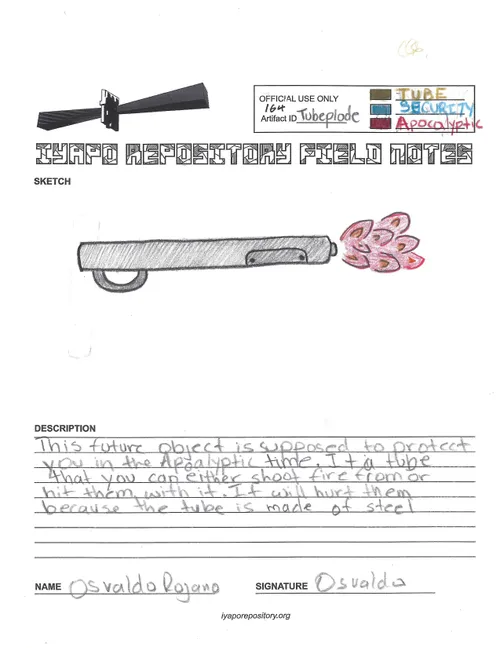 OFFICIAL USE ONLY
164
Artifact ID Tubeplode
TUBE
SECURITY
Apocalyptic
IYAPO REPOSITORY FIELD NOTES
SKETCH
DESCRIPTION
This future object is supposed to protect
you in the Apocalyptic time. It a tube
that you can either shoot fire from or
hit them with it. It will hurt them
because the tube is made of steel
NAME Osvaldo Rojano SIGNATURE Osvaldo
iyaporepository.org